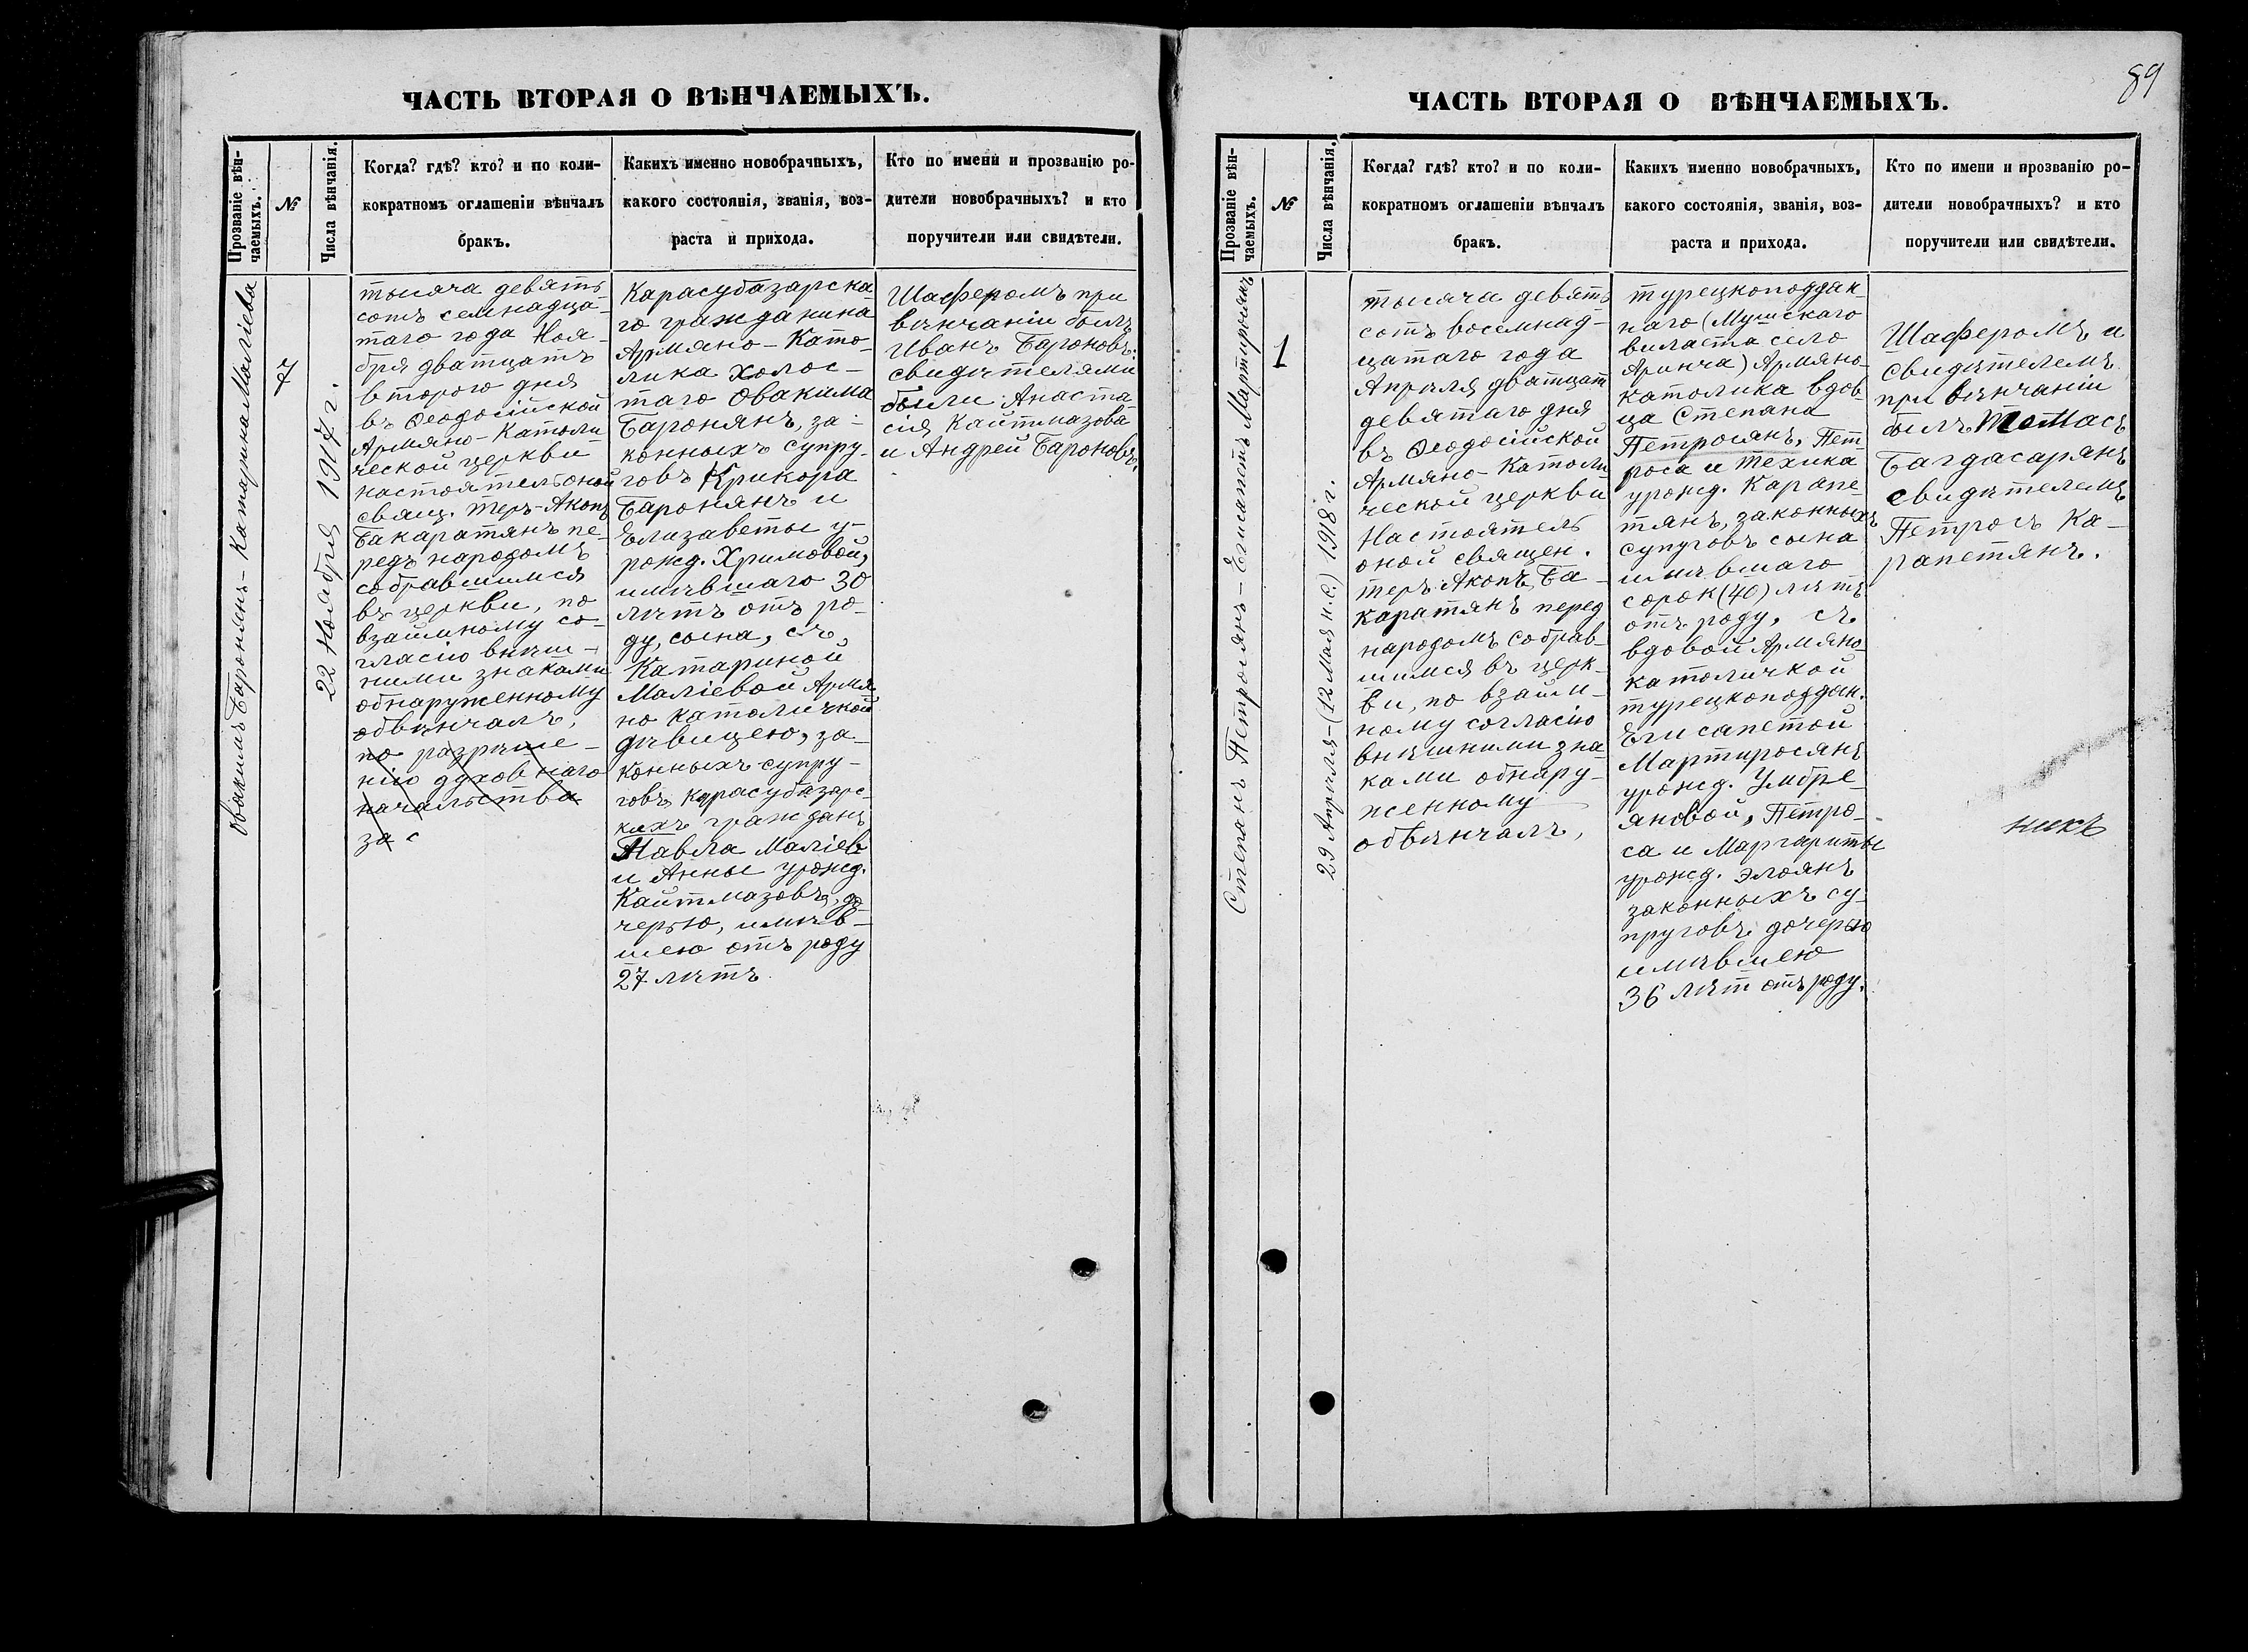 ЧАСТЬ ВТОРАЯ О ВѢНЧАЕМЫХЪ.
Прозваніе вѣн-
чаемыхъ.
№
Числа вѣнчанія.
Когда? гдѣ? кто? и по коли-
кократномъ оглашеніи вѣнчалъ
бракъ.
Какихъ именно новобрачныхъ,
какого состоянія, званія, воз-
раста и прихода.
Кто по имени и прозванію ро-
дители новобрачныхъ? и кто
поручители или свидѣтели.
Овакимъ Баронянъ - Катарина Маліева
7
22 Ноября 1917 г.
тысяча девять
сотъ семнадца-
таго года Ноя-
бря дватцать
второго дня
въ Ѳеодосійской
Армяно-Католи-
ческой церкви
настоятель оной
свящ. теръ-Акопъ
Бакаратянъ пе-
редъ народомъ
собравшимся
въ церкви, по
взаимному со-
гласію внѣш-
ними знаками
обнаруженному
обвѣнчалъ,
по разрѣше-
нію духовнаго
начальства
за с
Карасубазарска-
го гражданина
Армяно-Като-
лика холос-
таго Овакима
Баронянъ, за-
конныхъ супру-
говъ Крикора
Баронянъ и
Елизаветы у-
рожд. Хримовой,
имѣвшаго 30
лѣтъ отъ ро-
ду, сына, съ
Катариной
Маліевой Армя-
но католичкой
дѣвицею, за-
конныхъ супру-
говъ Карасубазарс-
кихъ гражданъ
Павла Маліевъ
и Анны урожд.
Кайтмазовъ, до-
черью, имѣв-
шею отъ роду
27 лѣтъ
Шаферомъ при
вѣнчаніи былъ
Иванъ Бароновъ:
свидѣтелями
были: Анаста-
сія Кайтмазова
и Андрей Бароновъ.
89
ЧАСТЬ ВТОРАЯ О ВѢНЧАЕМЫХЪ.
Прозваніе вѣн-
чаемыхъ.
№
Числа вѣнчанія.
Когда? гдѣ? кто? и по коли-
кократномъ оглашеніи вѣнчалъ
бракъ.
Какихъ именно новобрачныхъ,
какого состоянія, званія, воз-
раста и прихода.
Кто по имени и прозванію ро-
дители новобрачныхъ? и кто
поручители или свидѣтели.
Степанъ Петросянъ - Егисапетъ Мартиросянъ
1
29 Апрѣля-(12 Мая н.с.) 1918 г.
тысяча девять
сотъ восемнад-
цатаго года
Апрѣля дватцать
девятаго дня
въ Ѳеодосійской
Армяно-Католи
ческой церкви
Настоятель
оной священ.
теръ Акопъ Ба-
каратянъ перед
народомъ собрав-
шимся въ церк-
ви, по взаим-
ному согласію
внѣшними зна
ками обнару-
женному
обвѣнчалъ,
турецкоподдан-
наго (Мушскаго
вилаета село
Аринча) Армяно-
католика вдов-
ца Степана
Петросянъ, Пет
роса и Техика
урожд. Карапе-
тянъ, законныхъ
супуговъ сына
имѣвшаго
сорок (40) лѣтъ
отъ роду, съ
вдовой Армяно-
католичкой
турецкоподдан.
Егисапетой
Мартиросянъ
урожд. Умбре-
яновой, Петро-
са и Маргариты
урожд. Элоянъ
законныхъ су-
пруговъ дочерью
имѣвшею
36 лѣт отъ роду.
Шаферомъ и
свидѣтелемъ
при вѣнчаніи
былъ Томасъ
Багдасарянъ
свидѣтелемъ
Петросъ Ка-
рапетянъ.
никъ